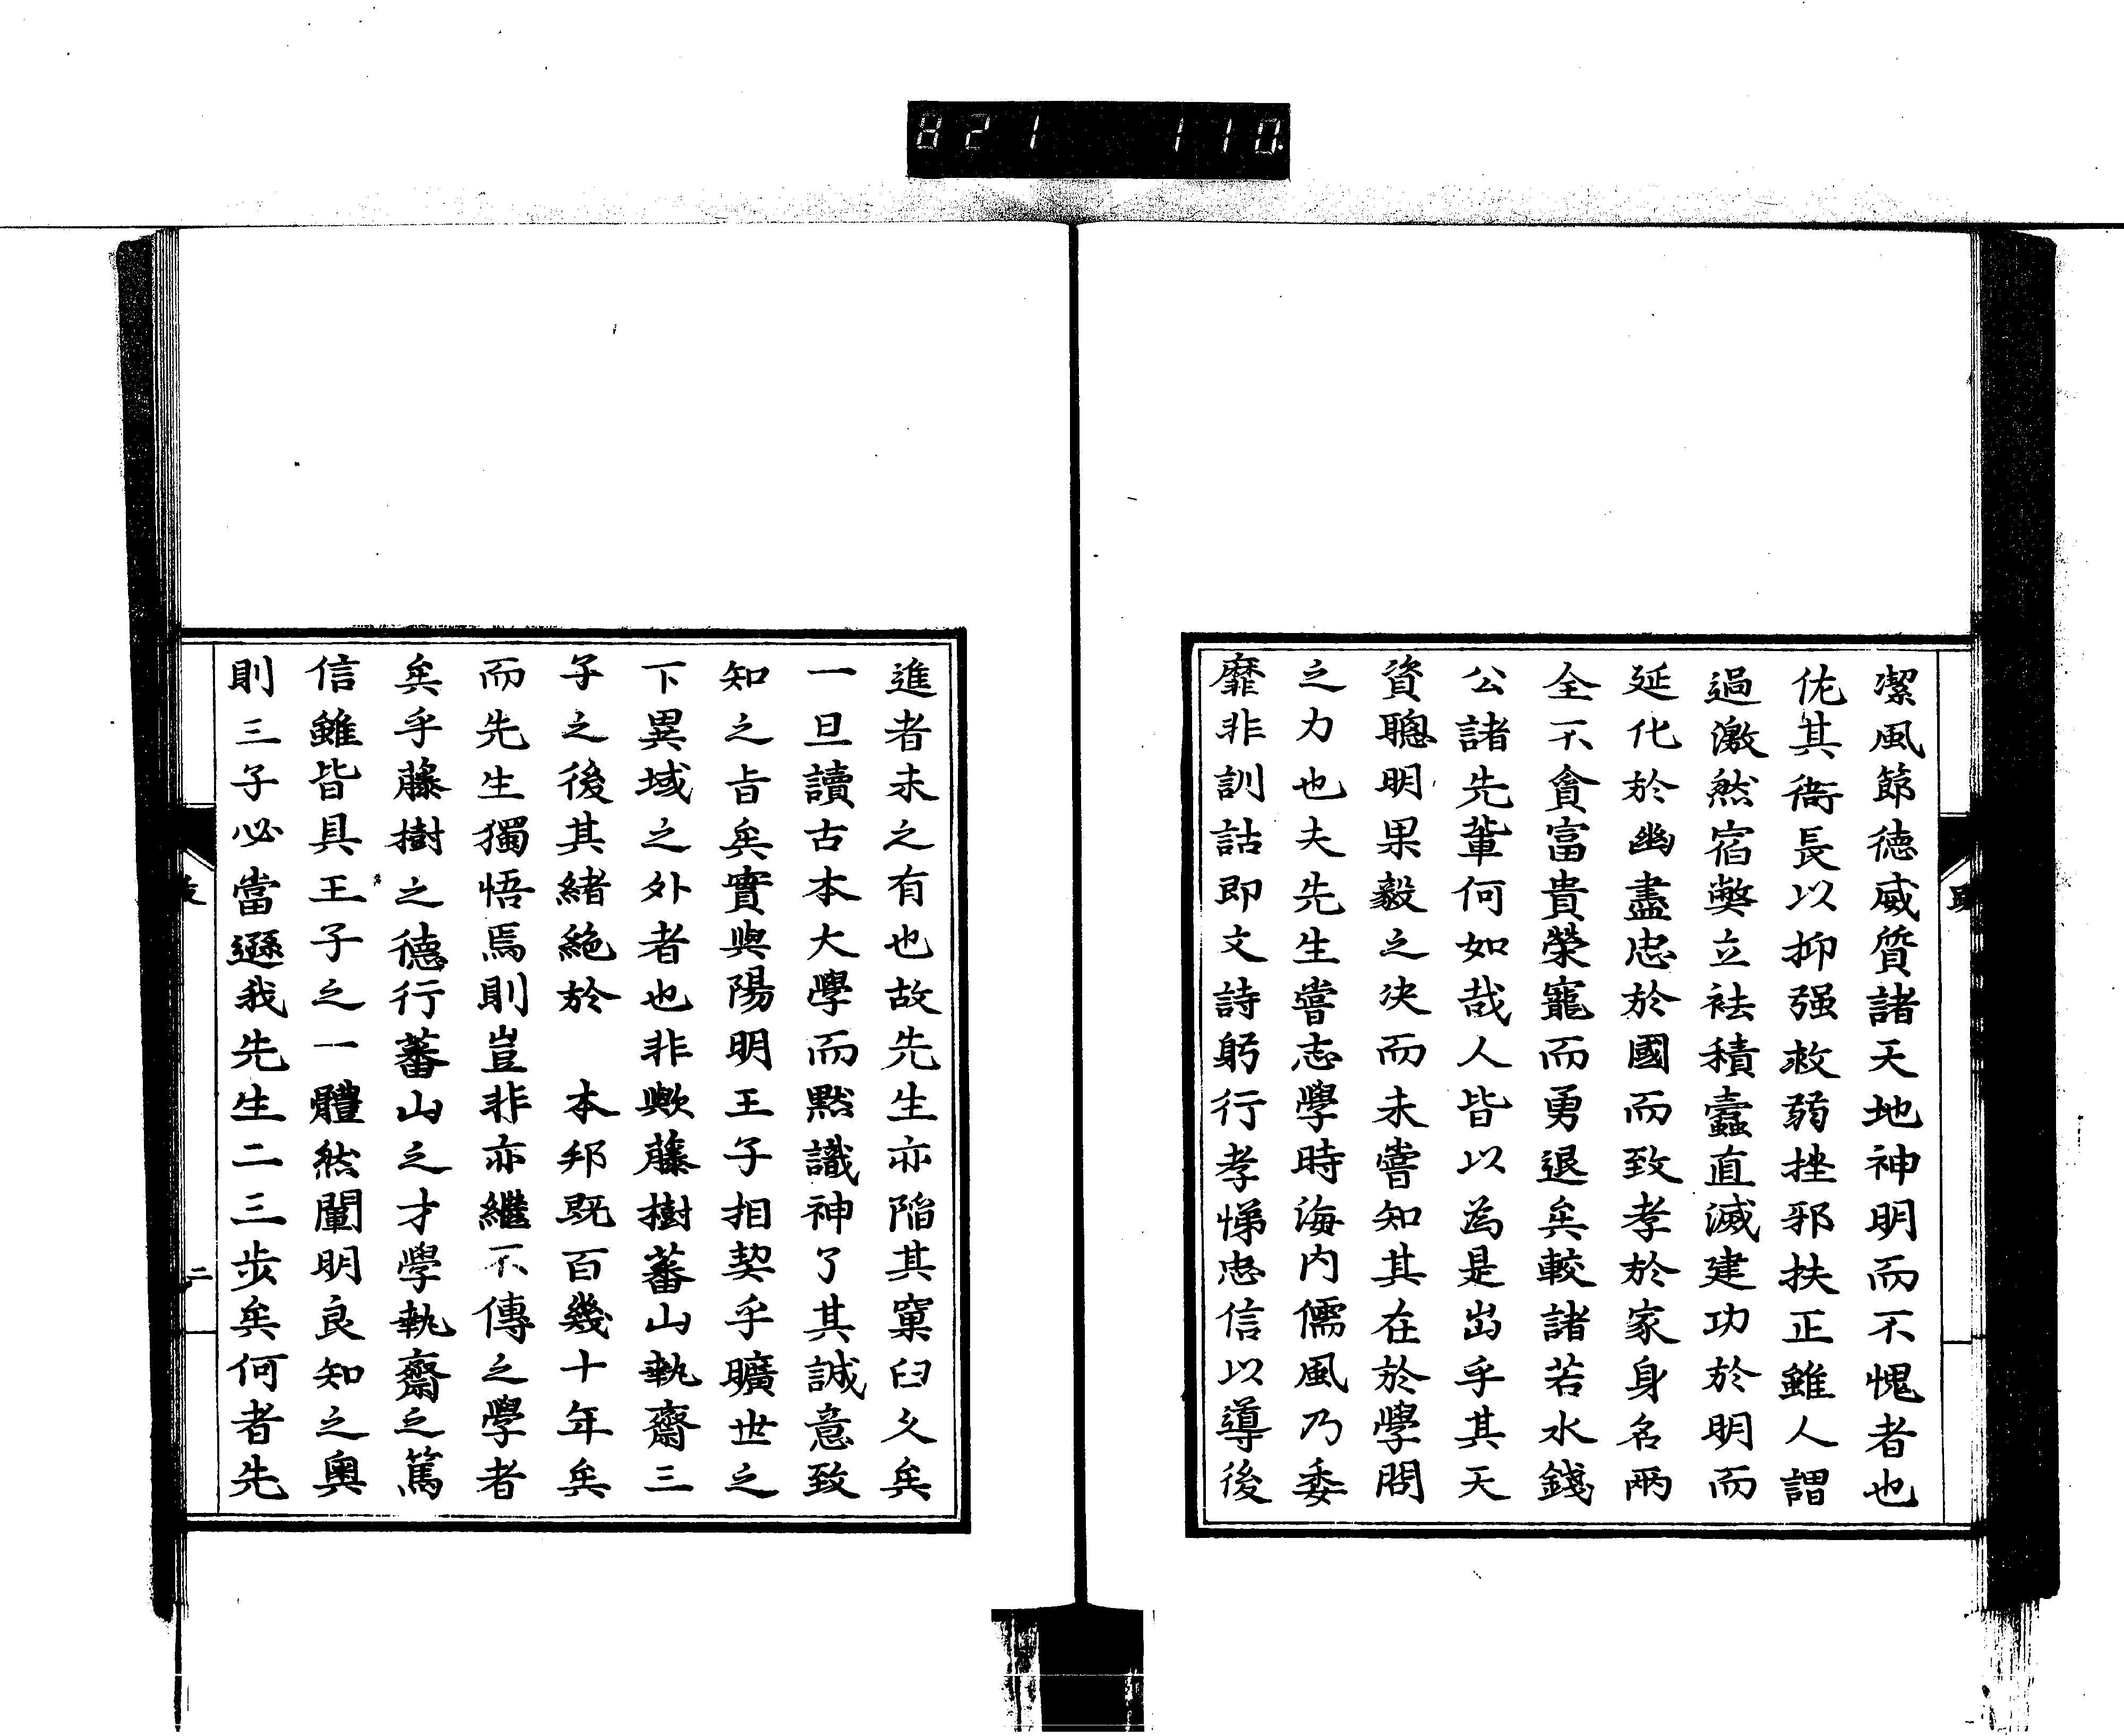 821 110
潔風節德威質諸天地神明而不愧者也
佐其衙長以抑强救弱挫邪扶正雖人謂
過激然宿弊立袪積蠹直滅建功於明而
延化於幽盡忠於國而致孝於家身名兩
全不貪富貴榮寵而勇退矣較諸若水錢
公諸先輩何如哉人皆以為是出乎其天
資聰明果毅之决而未嘗知其在於學問
之力也夫先生嘗志學時海內儒風乃委
靡非訓詁即文詩躬行孝悌忠信以導後
進者未之有也故先生亦陷其窠臼久矣
一旦讀古本大學而默識神了其誠意致
知之旨矣實與陽明王子相契乎曠世之
下異域之外者也非歟藤樹蕃山執齋三
子之後其緒絕於　本邦既百幾十年矣
而先生獨悟焉則豈非亦繼不傳之學者
矣乎藤樹之德行蕃山之才學執齋之篤
信雖皆具王子之一體然闡明良知之奧
則三子必當遜我先生二三步矣何者先
二